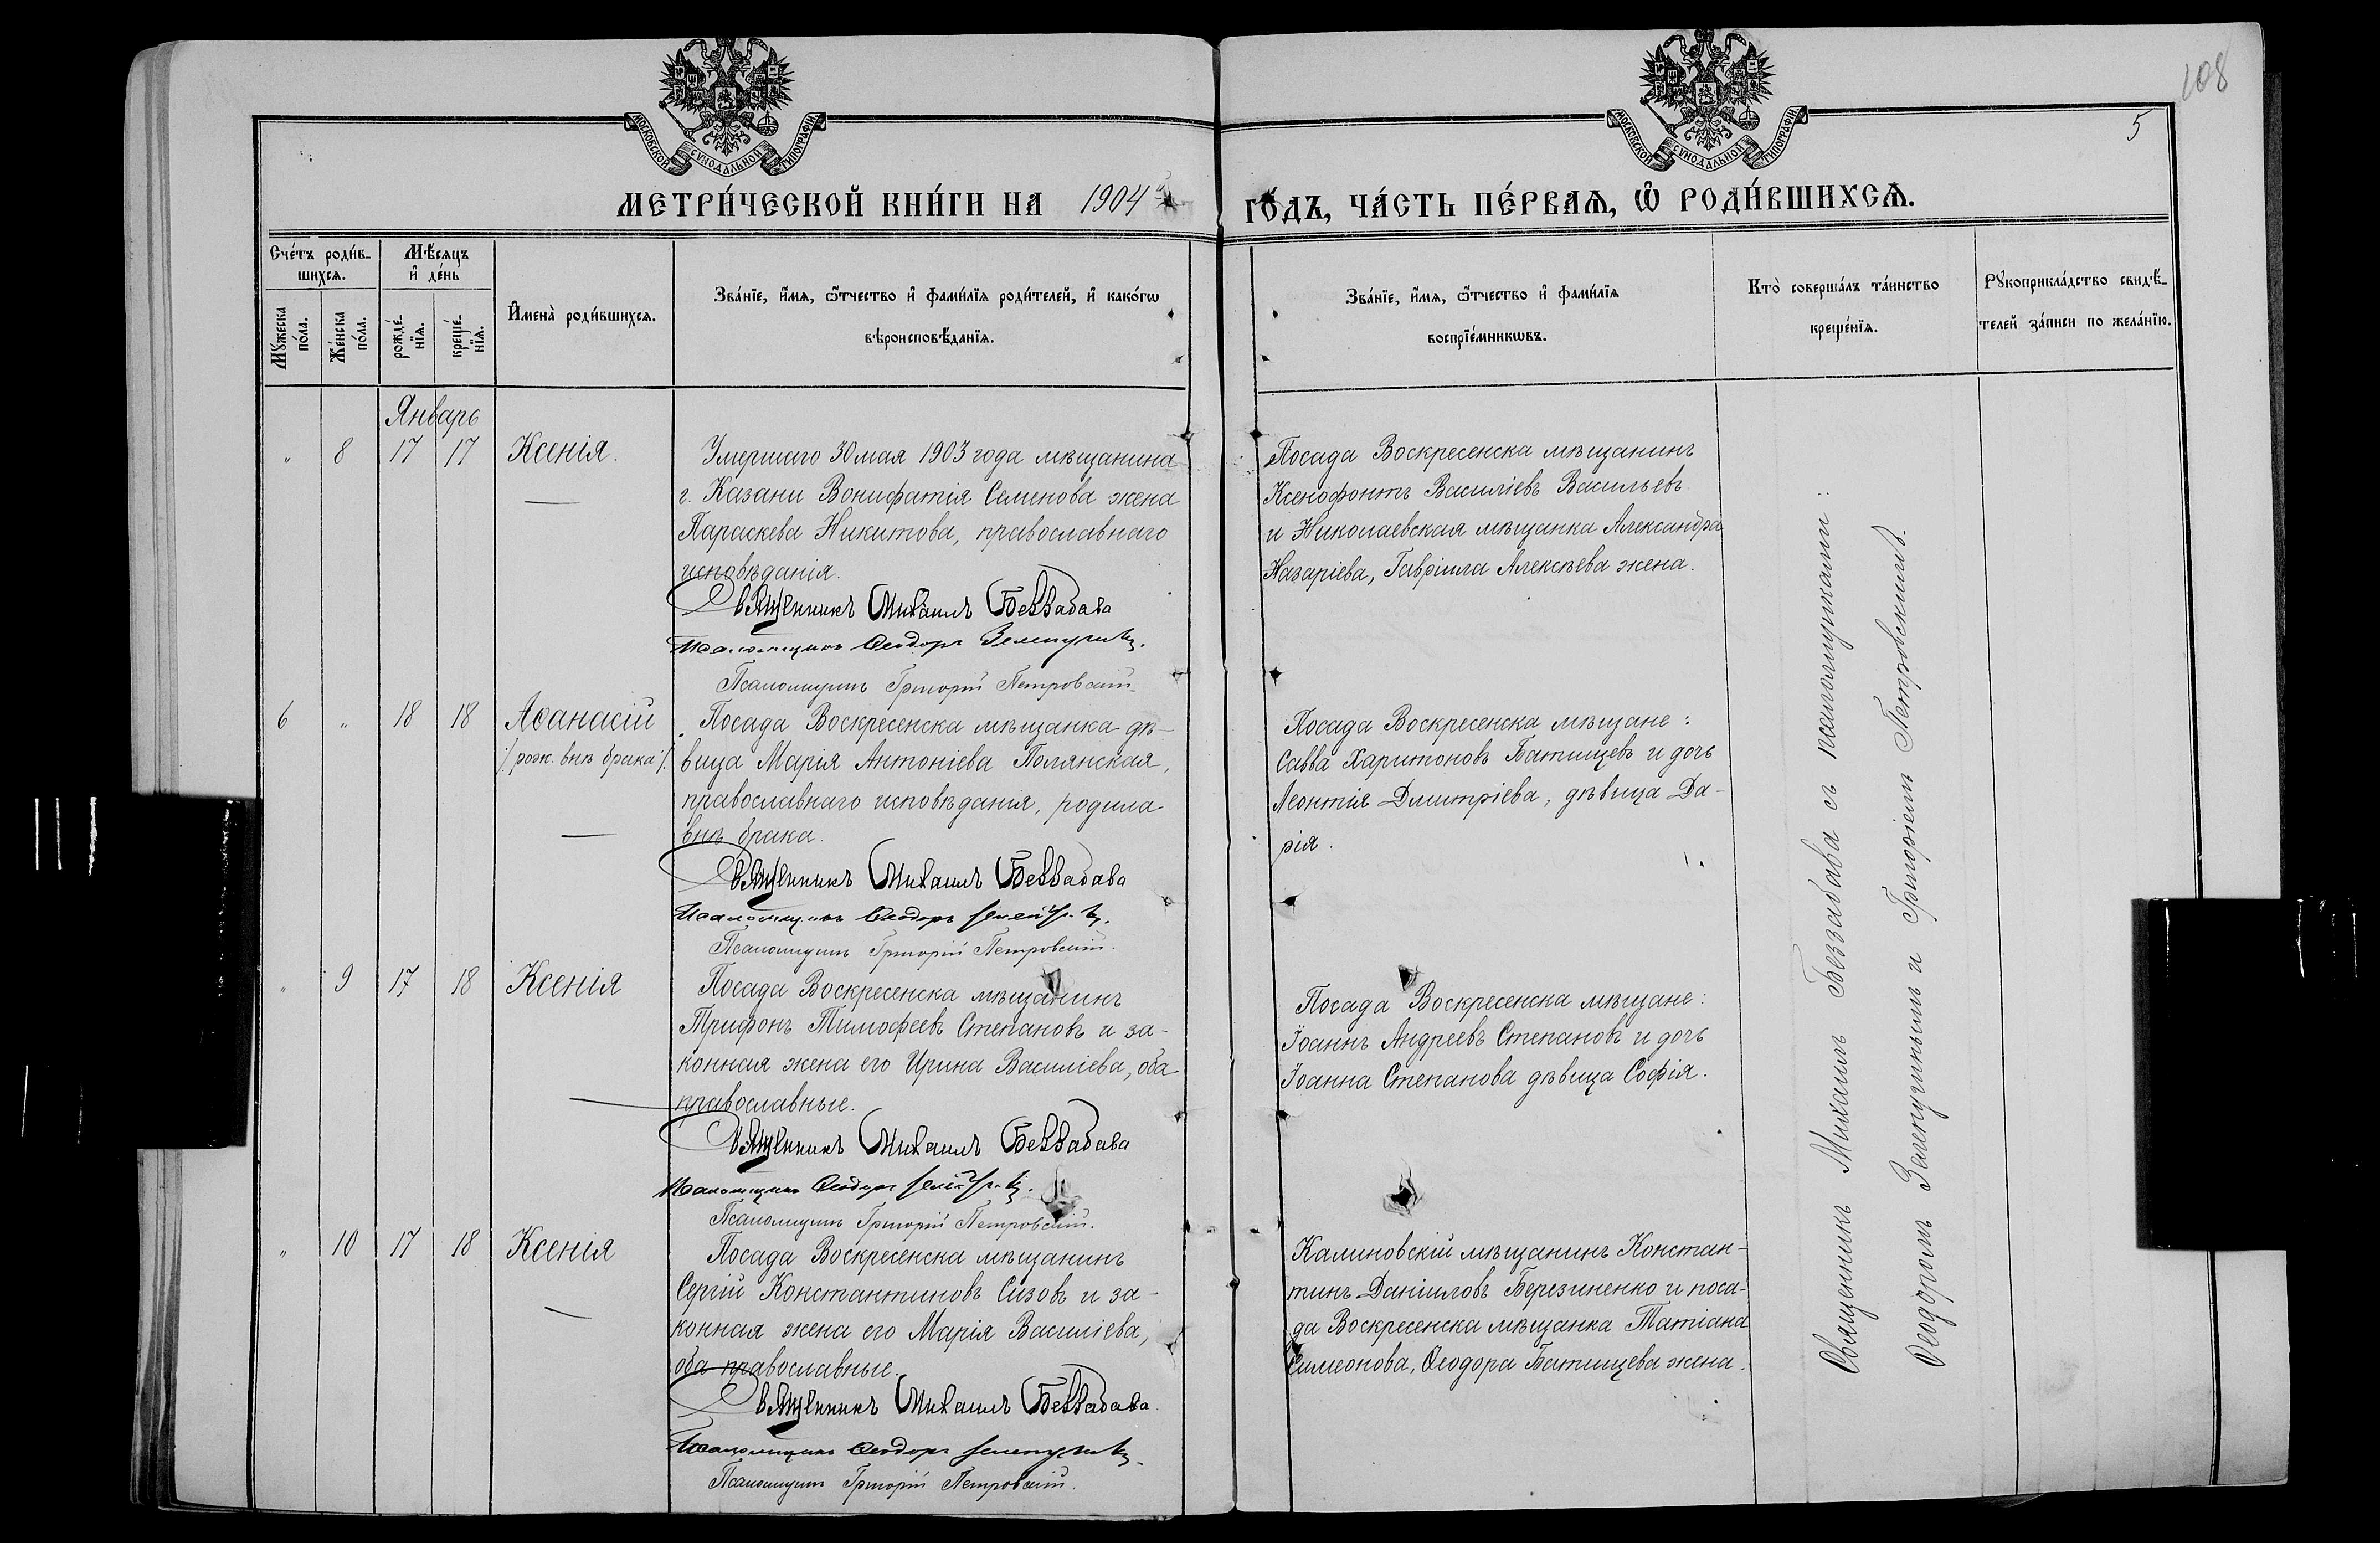 108
5
МОСКОВСКОЙ СѴНОДАЛЬНОЙ ТИПОГРАФІИ
МОСКОВСКОЙ СѴНОДАЛЬНОЙ ТИПОГРАФІИ
МЕТРИ́ЧЕСКОЙ КНИ́ГИ НА 1904
ГО́ДЪ, ЧА́СТЬ ПЕ́РВАѦ, Ѽ РОДИ́ВШИХСѦ.
Сче́тъ роди́в-
шихсѧ.
Мꙋ́жеска
по́ла.
Же́нска
по́ла.
Мѣ́сѧцъ
и҆ де́нь
рожде́-
нїѧ.
креще́-
нїѧ.
И҆мена̀ роди́вшихсѧ.
Зва́нїе, и҆́мѧ, ѻ҆́тчество и҆ фами́лїѧ роди́телей, и҆ како́гѡ
вѣроисповѣ́данїѧ.
Зва́нїе, и҆́мѧ, ѻ҆́тчество и҆ фами́лїѧ
воспрїе́мникѡвъ.
Кто̀ соверша́лъ та́инство
креще́нїѧ.
Рꙋкоприкла́дство свидѣ́-
телей за́писи по жела́нїю.
Январь
„ 8 17 17 Ксенія.
Умершаго 30 мая 1903 года мѣщанина
г. Казани Вонифатія Семенова жена
Параскева Никитова, православнаго
исповѣданія.
Священникъ Михаилъ Беззабава
Псаломщикъ Ѳеодоръ
Псаломщикъ Григорій Петровскій.
Посада Воскресенска мѣщанинъ
Ксенофонтъ Василіевъ Васильевъ
и Николаевская мѣщанка Александра
Назаріева, Гавріила Алексѣева жена.
6 „ 18 18 Аѳанасій
/: рож. внѣ брака :/
Посада Воскресенска мѣщанка дѣ-
вица Марія Антоніева Полянская,
православнаго исповѣданія, родила
внѣ брака.
Священникъ Михаилъ Беззабава
Псаломщикъ Ѳеодоръ
Псаломщикъ Григорій Петровскій.
Посада Воскресенска мѣщане:
Савва Харитоновъ Батищевъ и дочь
Леонтія Дмитріева, дѣвица Да-
рія.
„ 9 17 18 Ксенія
Посада Воскресенска мѣщанинъ
Трифонъ Тимофеевъ Степановъ и за-
конная жена его Ирина Василіева, оба
православные.
Священникъ Михаилъ Беззабава
Псаломщикъ Ѳеодоръ
Псаломщикъ Григорій Петровскій.
Посада Воскресенска мѣщане:
Іоаннъ Андреевъ Степановъ и дочь
Іоанна Степанова дѣвица Софія.
„ 10 17 18 Ксенія
Посада Воскресенска мѣщанинъ
Сергій Константиновъ Сизовъ и за-
конная жена его Марія Василіева,
оба православные.
Священникъ Михаилъ Беззабава.
Псаломщикъ Ѳеодоръ
Псаломщикъ Григорій Петровскій.
Калиновскій мѣщанинъ Констан-
тинъ Даніиловъ Березиненко и поса-
да Воскресенска мѣщанка Татіана
Симеонова, Ѳеодора Батищева жена.
Священникъ Михаилъ Беззабава съ псаломщиками:
Ѳеодоромъ и Григоріемъ Петровскимъ.